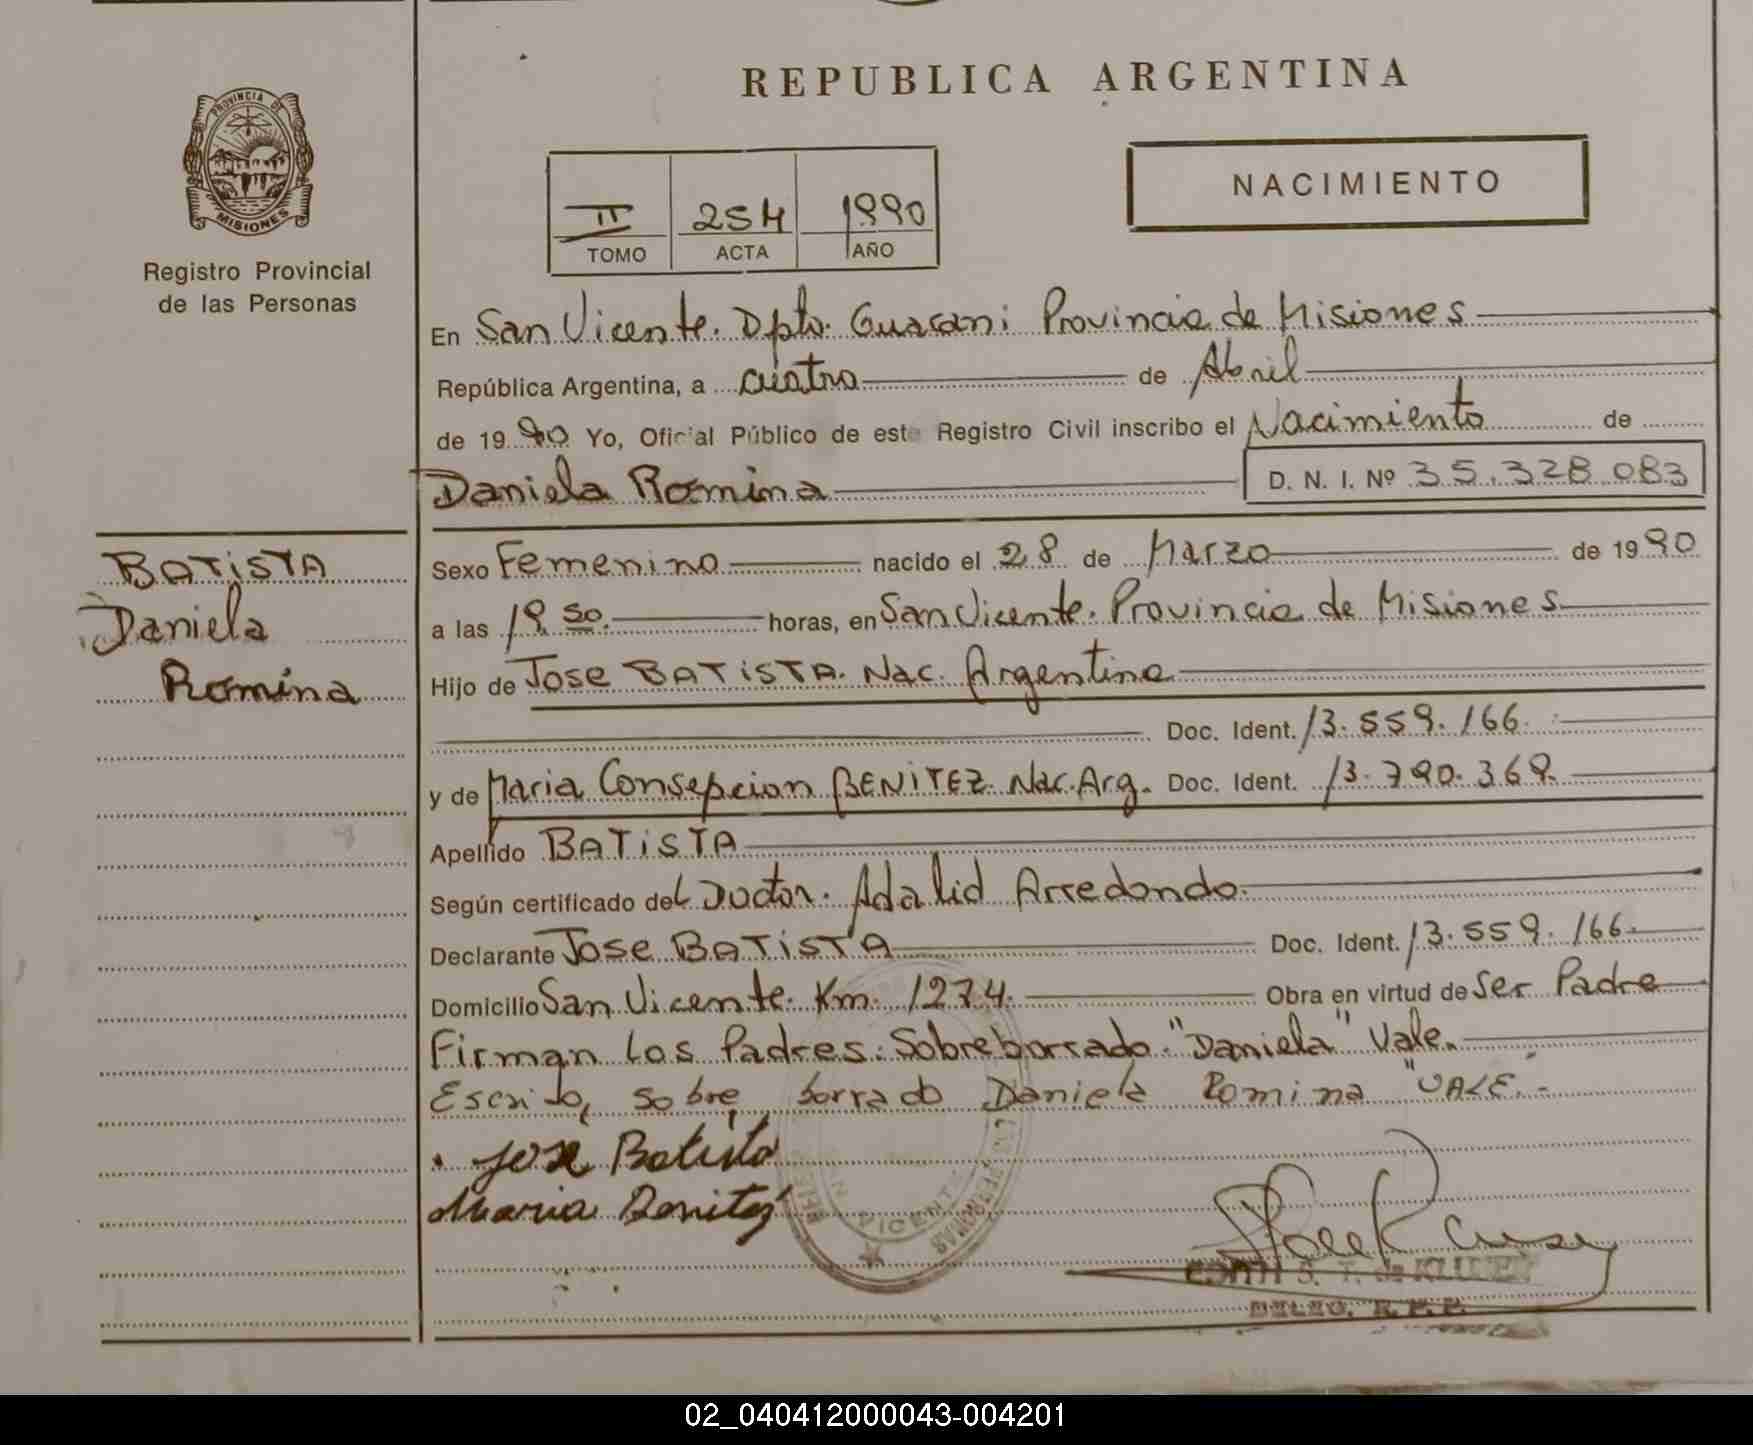 REPUBLICA ARGENTINA
PROVINCIA DE
MISIONES
Registro Provincial
de las Personas
NACIMIENTO
II 254 1990
TOMO ACTA AÑO
En San Vicente. Dpto. Guarani Provincia de Misiones
República Argentina, a cuatro de Abril
de 1990 Yo, Oficial Público de este Registro Civil inscribo el Nacimiento de
Daniela Romina D. N. I. Nº 35.328.083
BATiSTA
Daniela
Romina
Sexo Femenino nacido el 28 de Marzo de 1990
a las 19.50. horas, en San Vicente. Provincia de Misiones
Hijo de Jose BATiSTA. Nac. Argentina
Doc. Ident. 13.559.166.
y de Maria Consepcion BENiTEZ. Nac. Arg. Doc. Ident. 13.790.369.
Apellido BATiSTA
Según certificado del Doctor. Adalid Arredondo.
Declarante Jose BATiSTA Doc. Ident. 13.559.166.
Domicilio San Vicente. Km. 1274. Obra en virtud de Ser Padre
Firman los Padres. Sobreborrado. "Daniela" Vale.
Escrito, sobre borrado Daniela Romina "VALE.-
Jose Batista
Maria Benitez
VICENTE
PERSONAS
R. P. P.
02_040412000043-004201